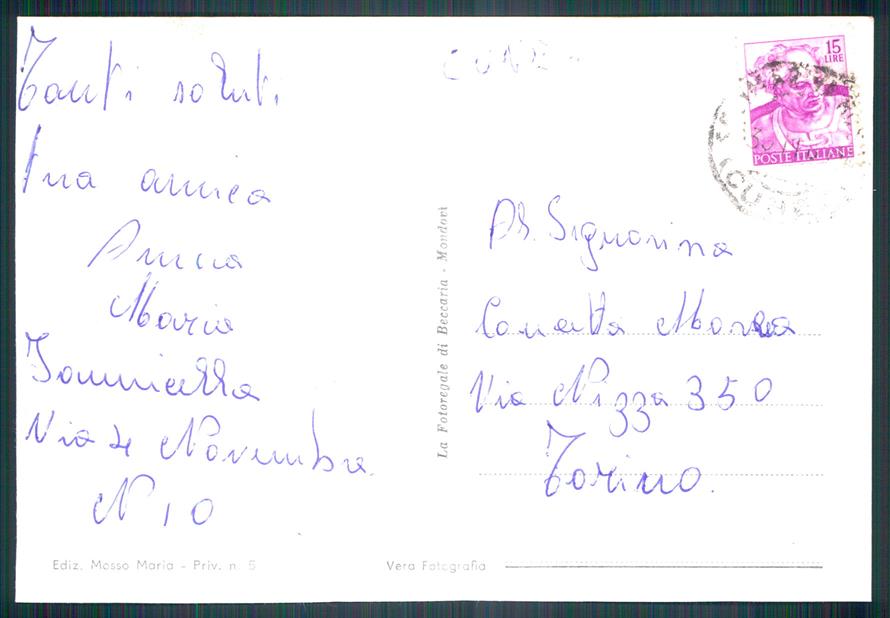 Tanti saluti
tua amica
Anna
Maria
Iannicella
Via 4 Novembre
N 10
CUNE
15
LIRE
POSTE ITALIANE
Signorina
Via Nizza 350
Torino.
La Fotoregale di Beccaria - Mondovì
Ediz. Mosso Maria - Priv. n. 5
Vera Fotografia